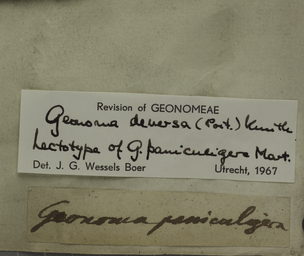 Revision of GEONOMEAE
Geonoma deversa (Poit.) Kunth
Lectotype of G. paniculigera Mart.
Det. J. G. Wessels Boer Utrecht, 1967
Geonoma paniculigera